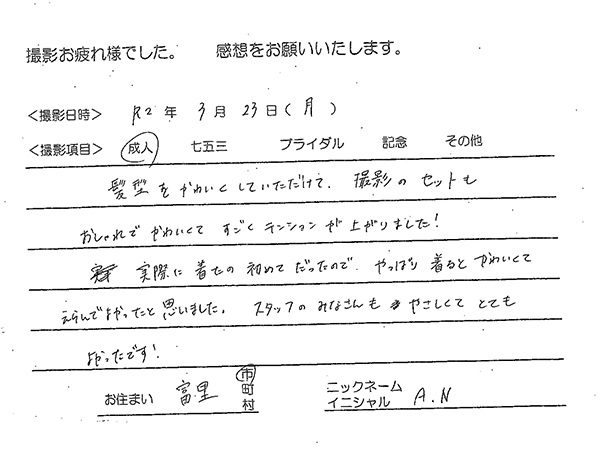 撮影お疲れ様でした。 感想をお願いいたします。
<撮影日時> R2年 3月 23日(月)
<撮影項目> 成人 七五三 ブライダル 記念 その他
髪型をかわいくしていただけて、撮影のセットも
おしゃれでかわいくてすごくテンションが上がりました!
実際に着たの初めてだったので、やっぱり着るとかわいくて
えらんでよかったと思いました。スタッフのみなさんもやさしくてとても
よかったです!
お住まい 富里 市 町 村 ニックネーム イニシャル A.N